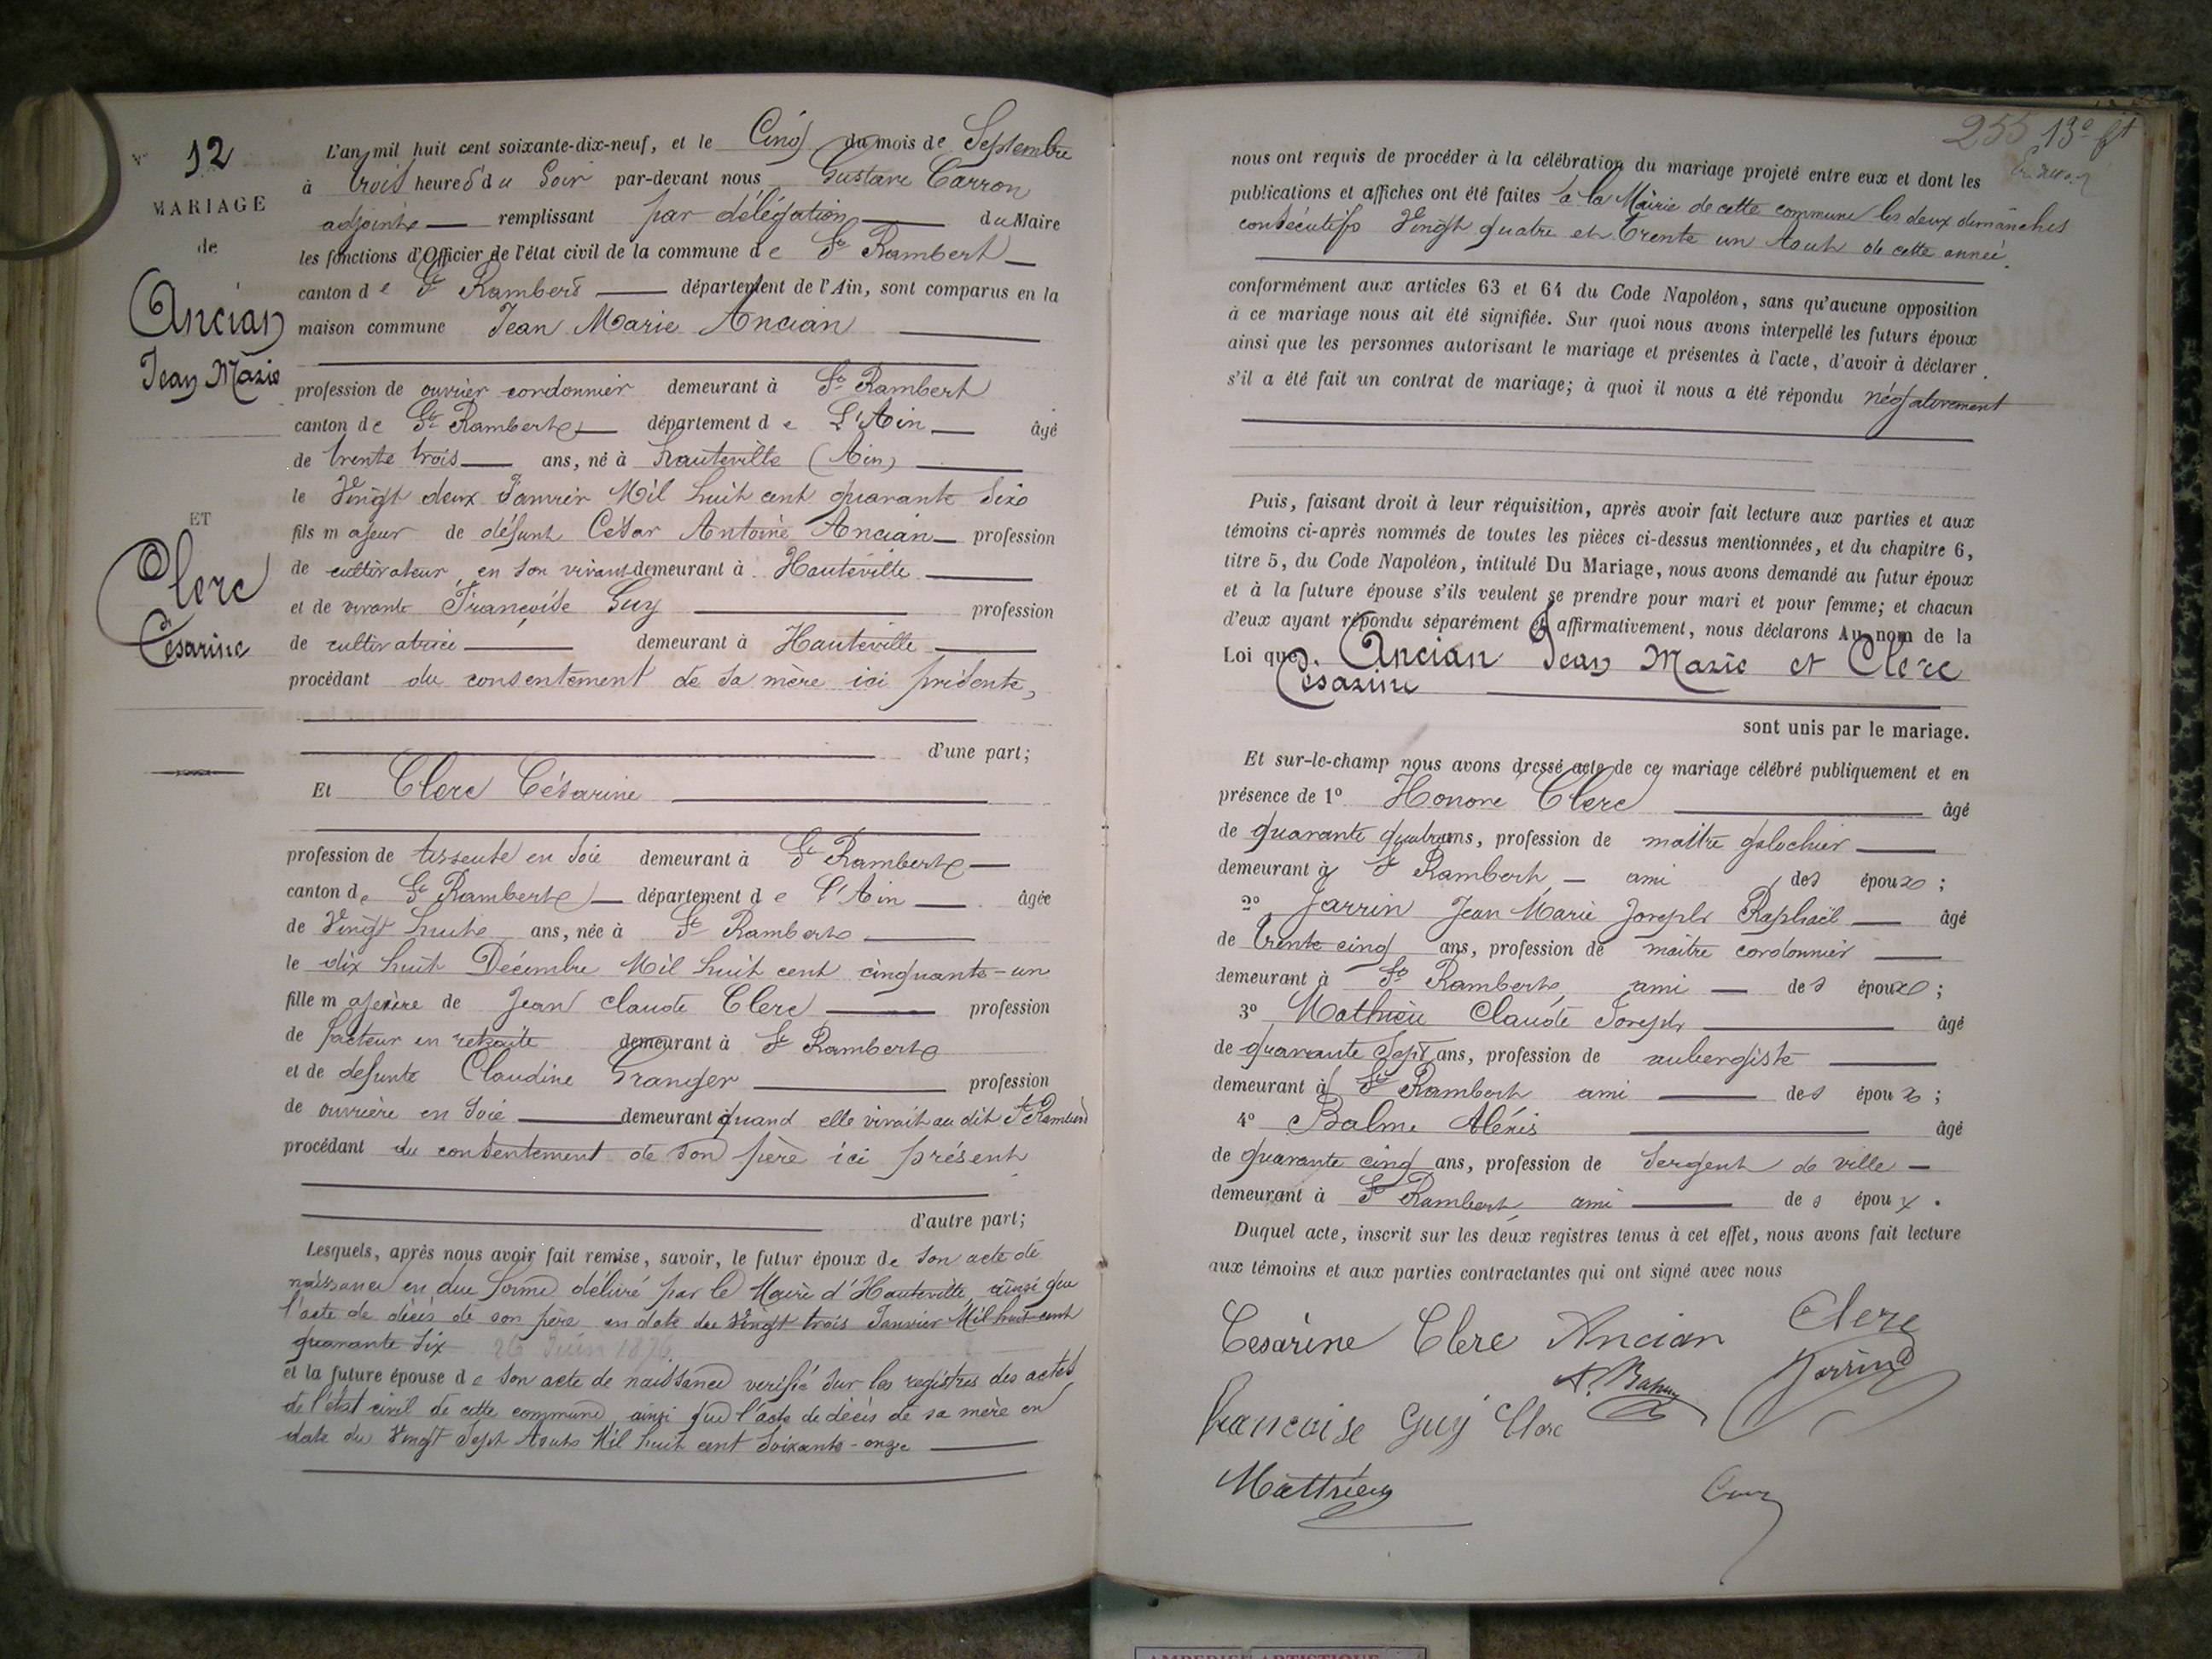 N° 12
MARIAGE
de
Ancian
Jean Marie
ET
Clerc
Césarine
L'an mil huit cent soixante-dix-neuf, et le Cinq du mois de Septembre
à trois heures du Soir par-devant nous Gustave Carron
adjoint remplissant par délégation du Maire
les fonctions d'Officier de l'état civil de la commune de St Rambert
canton de St Rambert département de l'Ain, sont comparus en la
maison commune Jean Marie Ancian
profession de ouvrier cordonnier demeurant à St Rambert
canton de St Rambert département de L'Ain âgé
de trente trois ans, né à Hauteville (Ain)
le Vingt deux Janvier Mil huit cent quarante six
fils majeur de défunt César Antoine Ancian profession
de cultivateur en son vivant demeurant à Hauteville
et de vivante Françoise Guy profession
de cultivatrice demeurant à Hauteville
procédant du consentement de sa mère ici présente,
d'une part;
Et Clerc Césarine
profession de tisseuse en soie demeurant à St Rambert
canton de St Rambert département de l'Ain âgée
de Vingt huit ans, née à St Rambert
le dix huit Décembre Mil huit cent cinquante-un
fille majeure de Jean Claude Clerc profession
de facteur en retraite demeurant à St Rambert
et de defunte Claudine Granger profession
de ouvrière en soie demeurant quand elle vivait au dit St Rambert
procédant du consentement de son père ici présent
d'autre part;
Lesquels, après nous avoir fait remise, savoir, le futur époux de son acte de
naissance en due forme délivré par le Maire d'Hauteville, ainsi que
l'acte de décès de son père en date du vingt trois Janvier Mil huit cent
quarante six 26 Juin 1876
et la future épouse de son acte de naissance verifié sur les registres des actes
de l'état civil de cette commune, ainsi que l'acte de décès de sa mère en
date du Vingt Sept Août Mil huit cent soixante-onze
255 13e ft
nous ont requis de procéder à la célébration du mariage projeté entre eux et dont les
publications et affiches ont été faites à la Mairie de cette commune les deux dimanches
consécutifs Vingt quatre et Trente un Août de cette année.
conformément aux articles 63 et 64 du Code Napoléon, sans qu'aucune opposition
à ce mariage nous ait été signifiée. Sur quoi nous avons interpellé les futurs époux
ainsi que les personnes autorisant le mariage et présentes à l'acte, d'avoir à déclarer
s'il a été fait un contrat de mariage; à quoi il nous a été répondu négativement
Puis, faisant droit à leur réquisition, après avoir fait lecture aux parties et aux
témoins ci-après nommés de toutes les pièces ci-dessus mentionnées, et du chapitre 6,
titre 5, du Code Napoléon, intitulé Du Mariage, nous avons demandé au futur époux
et à la future épouse s'ils veulent se prendre pour mari et pour femme; et chacun
d'eux ayant répondu séparément et affirmativement, nous déclarons Au nom de la
Loi que Ancian Jean Marie et Clerc
Césarine
sont unis par le mariage.
Et sur-le-champ nous avons dressé acte de ce mariage célébré publiquement et en
présence de 1° Honore Clerc âgé
de quarante quatre ans, profession de maitre galochier
demeurant à St Rambert ami des époux ;
2° Jarrin Jean Marie Joseph Raphaël âgé
de trente cinq ans, profession de maitre cordonnier
demeurant à St Rambert, ami des époux ;
3° Mathieu Claude Joseph âgé
de quarante Sept ans, profession de aubergiste
demeurant à St Rambert ami des époux ;
4° Balme Aléxis âgé
de quarante cinq ans, profession de Sergent de ville
demeurant à St Rambert, ami des époux .
Duquel acte, inscrit sur les deux registres tenus à cet effet, nous avons fait lecture
aux témoins et aux parties contractantes qui ont signé avec nous
Cesarine Clerc Ancian Clerc
Jarrin
francoise Guy Clerc
Matthieu
AMBERIEU ARTISTIQUE